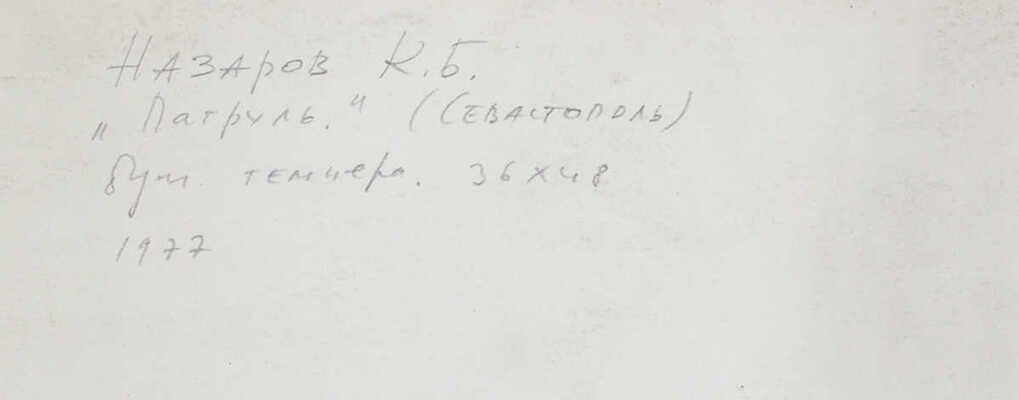 Назаров К.Б.
„Патруль." (Севастополь)
бум. темпера. 36х48
1977